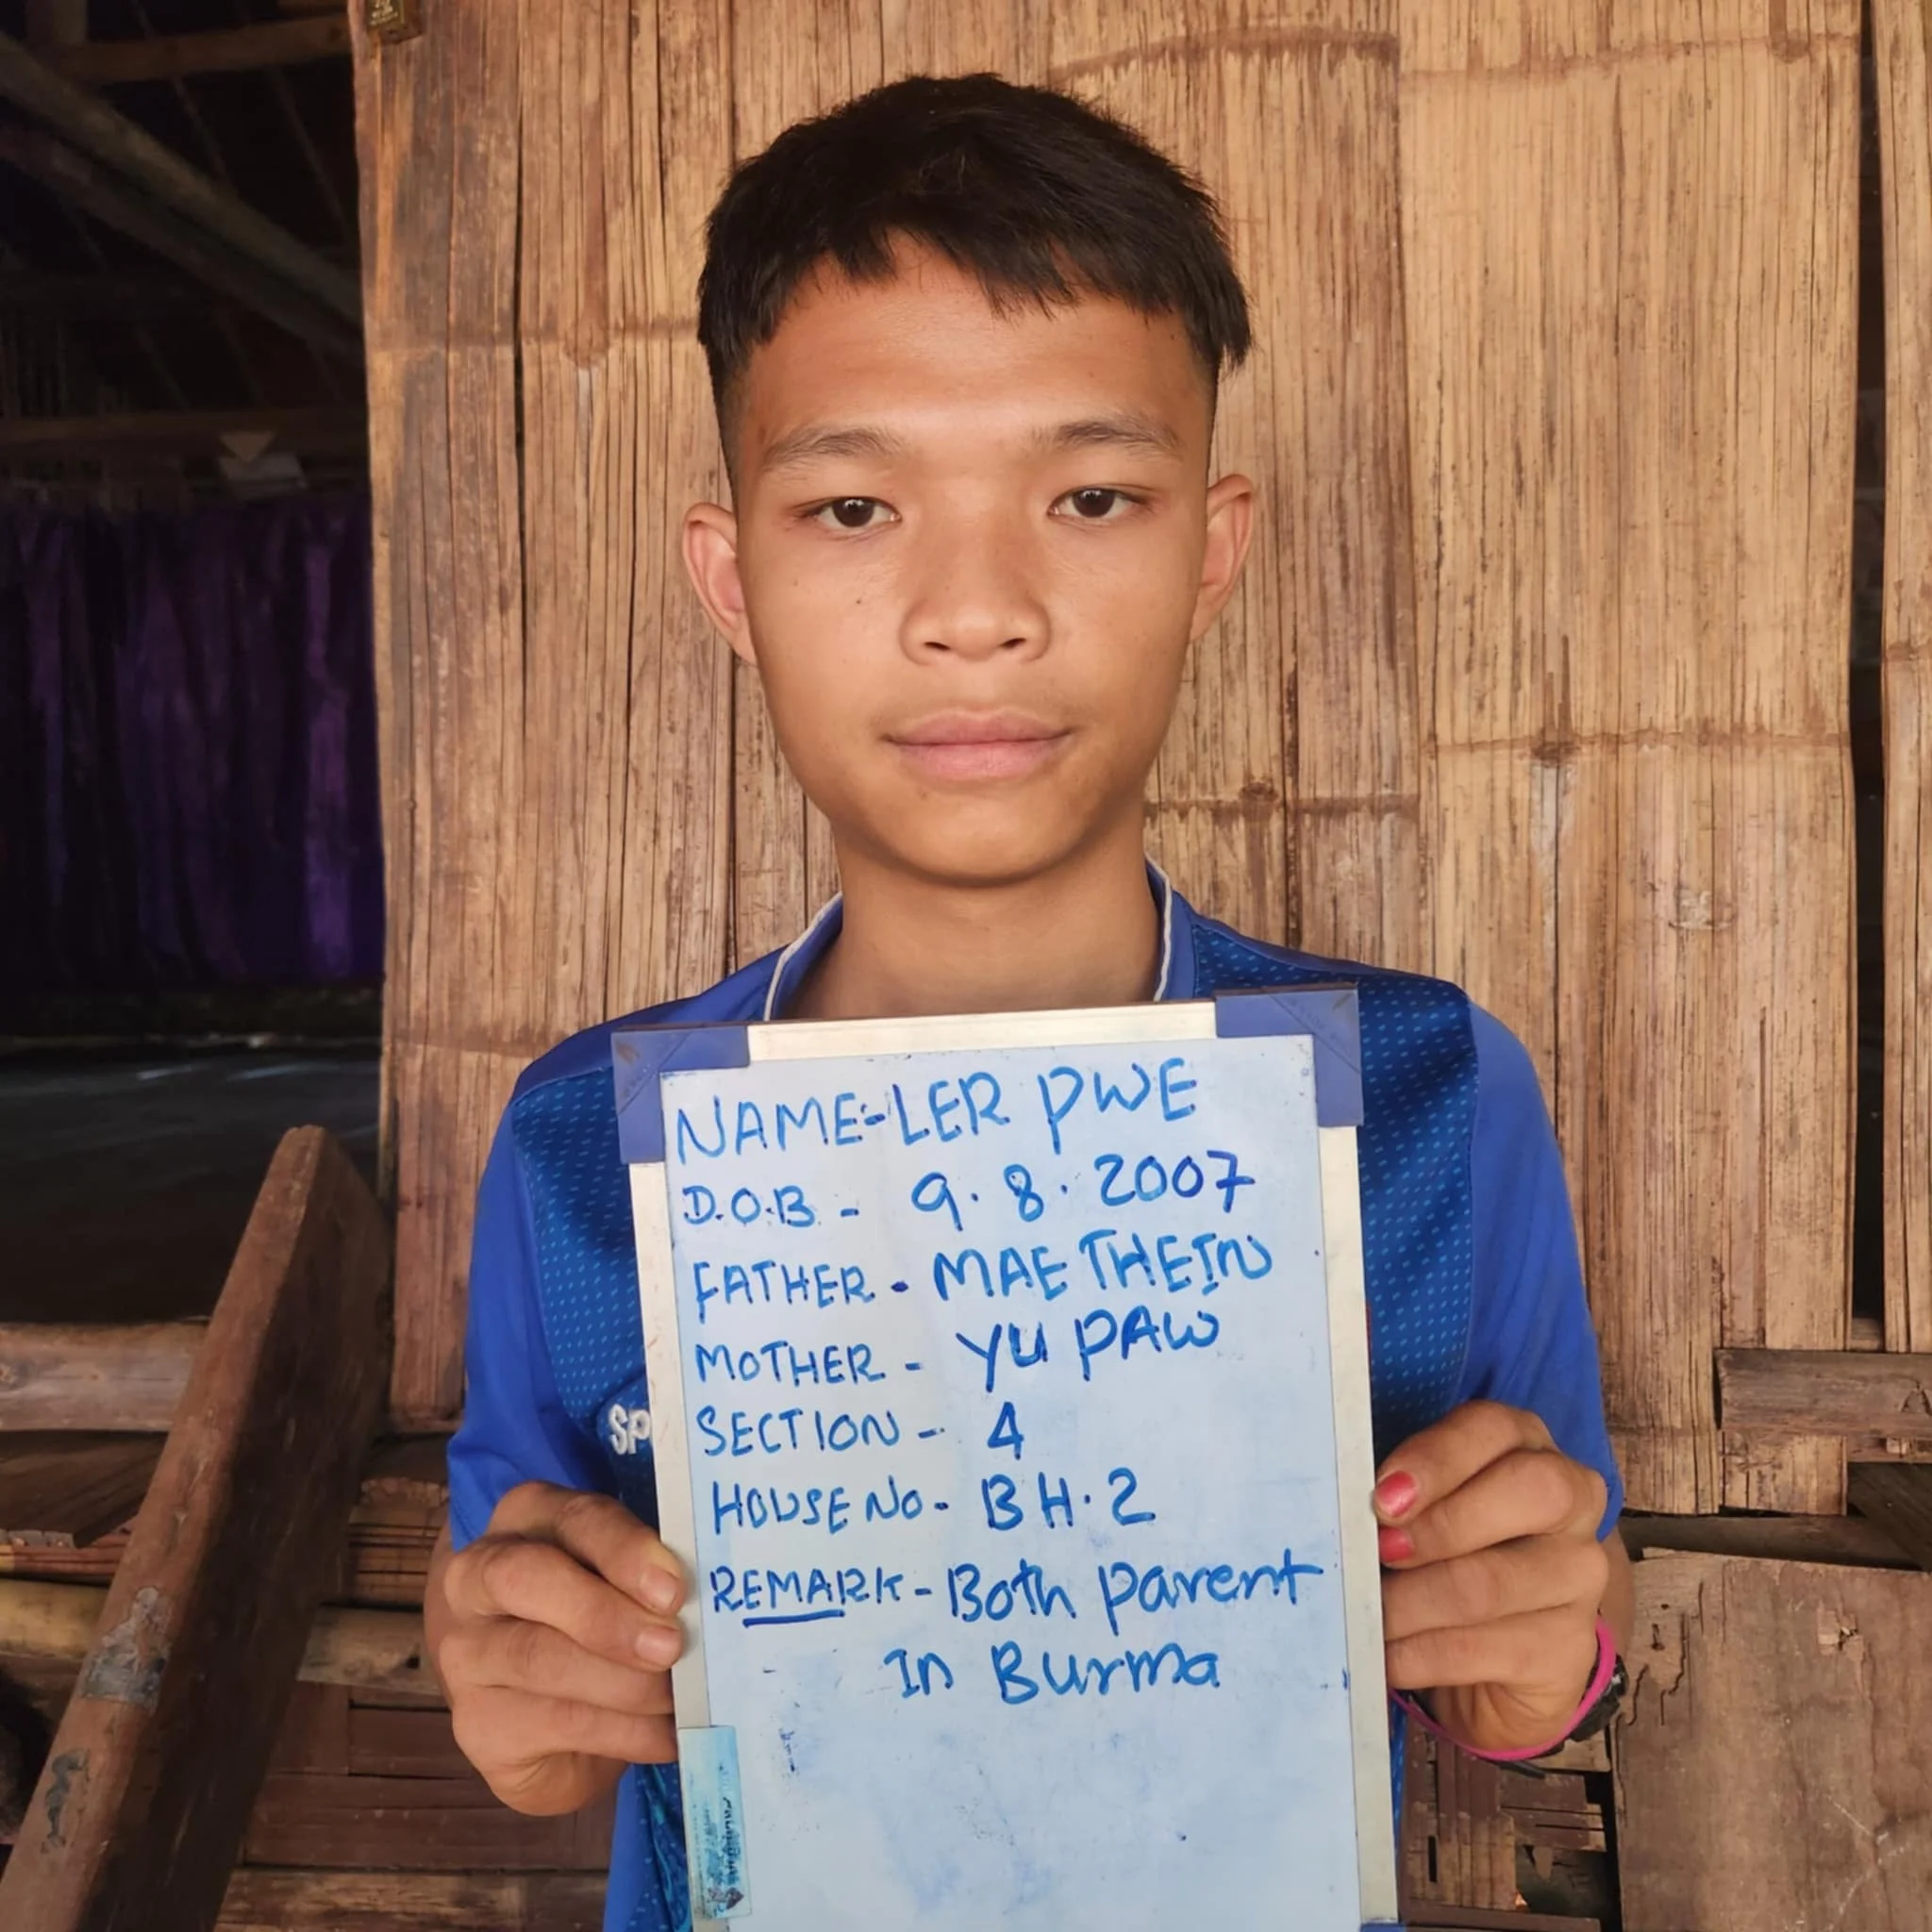 NAME:-LER PWE
D.O.B. - 9.8.2007
FATHER - MAE THEIN
MOTHER - YU PAW
SECTION - 4
HOUSE NO - BH.2
REMARK - Both parent
In Burma
SP